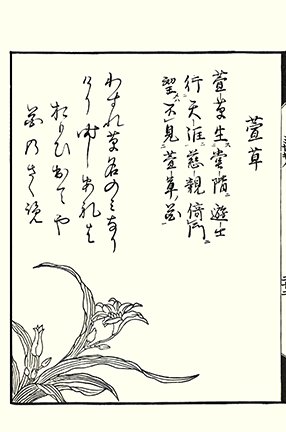 萱草
萱草生堂階遊子
行天涯慈親倚門
望不見萱草花
わすれ草名のミなり
けり時しあれは
おもひ出てや
花乃さく覧